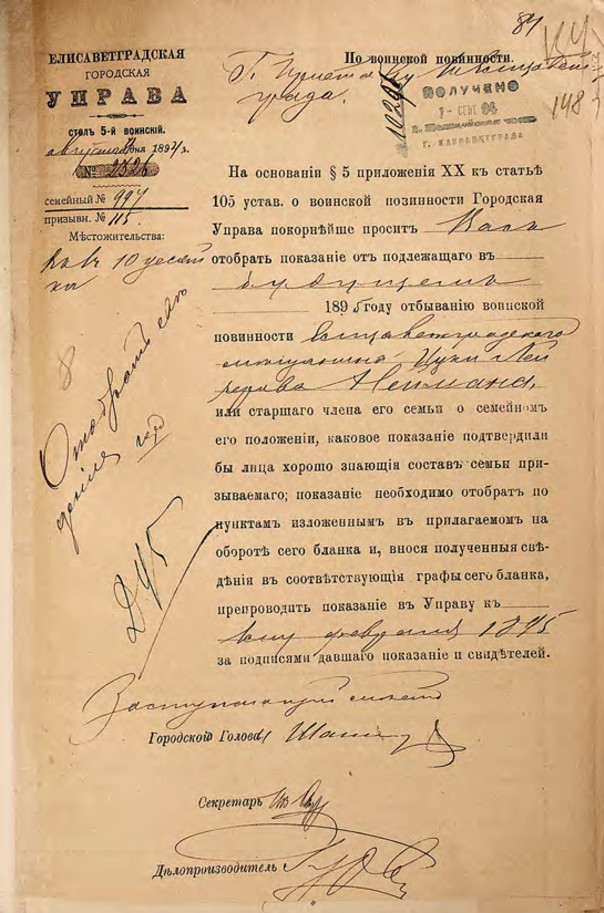 84
ЕЛИСАВЕТГРАДСКАЯ
ГОРОДСКАЯ
УПРАВА
столъ 5-й воинскій.
августа 1894 г.
№ 2326
семейный № 997
призывн. № 115.
Мѣстожительства:
10
По воинской повинности.
Г. Приставу
града.
10295
ПОЛУЧЕНО
1- СЕНТ 94
Г. ЕЛИСАВЕТГРАДА
148
На основаніи § 5 приложенія XX къ статьѣ
105 устав. о воинской повинности Городская
Управа покорнѣйше проситъ Васъ
отобрать показаніе отъ подлежащаго въ
будущемъ
1895 году отбыванію воинской
повинности Елисаветградскаго
мѣщанина Цуки Лей
зерова Неймана,
или старшаго члена его семьи о семейномъ
его положеніи, каковое показаніе подтвердили
бы лица хорошо знающія составъ семьи при-
зываемаго; показаніе необходимо отобрать по
пунктамъ изложеннымъ въ прилагаемомъ на
оборотѣ сего бланка и, внося полученныя свѣ-
дѣнія въ соотвѣтствующія графы сего бланка,
препроводить показаніе въ Управу къ
1му февраля 1895
за подписями давшаго показаніе и свидѣтелей.
8
Отобрать
Заступающій мѣсто
Городской Головы
Секретарь
Дѣлопроизводитель